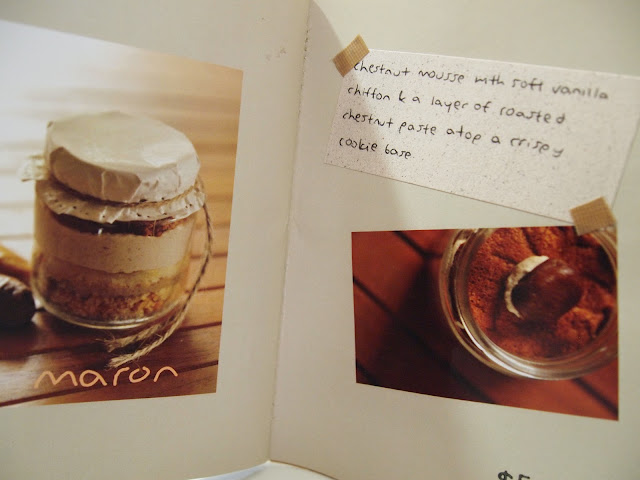 maron
chestnut mousse with soft vanilla
chiffon & a layer of roasted
chestnut paste atop a crispy
cookie base